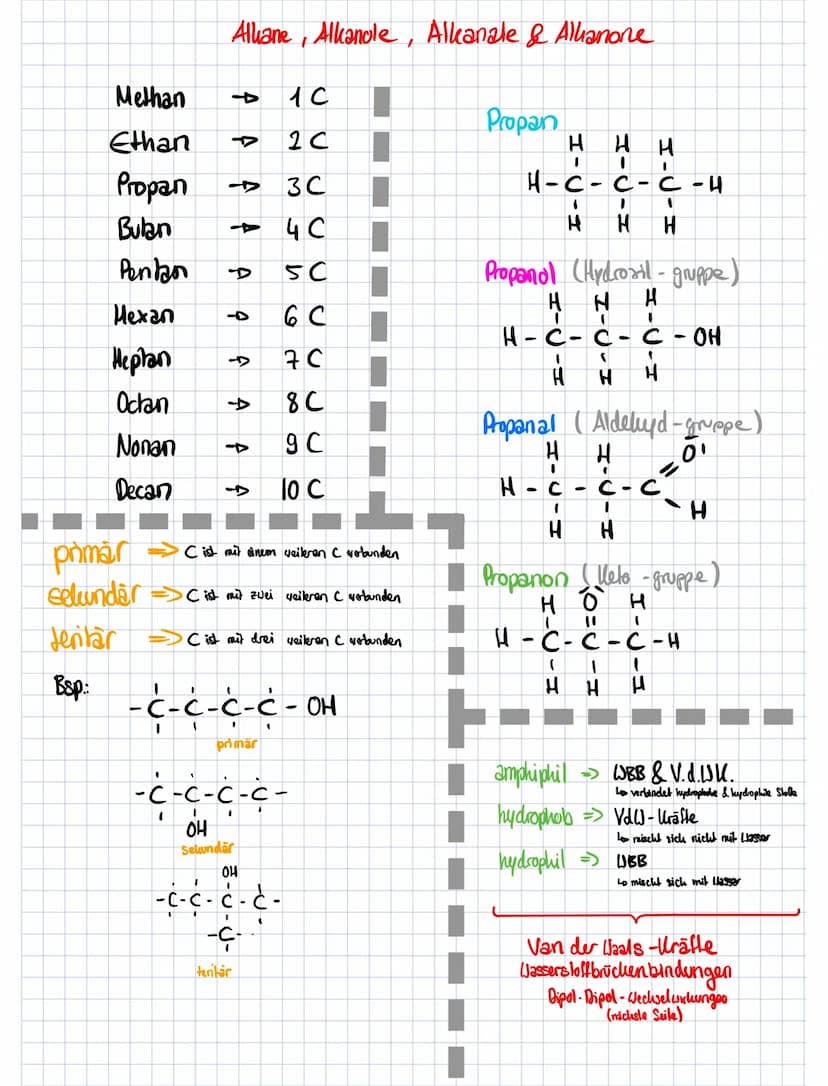 Alkane, Alkanole, Alkanale & Alkanone
Methan → 1C
Ethan → 2C
Propan → 3C
Butan → 4C
Pentan → 5C
Hexan → 6C
Heptan → 7C
Octan → 8C
Nonan → 9C
Decan → 10C
primär => C ist mit einem weiteren C verbunden
sekundär => C ist mit zwei weiteren C verbunden
tertiär => C ist mit drei weiteren C verbunden
Bsp.:
-C-C-C-C-OH
primär
-C-C-C-C-
OH
sekundär
OH
-C-C-C-C-
-C-
tertiär
Propan
H H H
H-C-C-C-H
H H H
Propanol (Hydroxil-gruppe)
H H H
H-C-C-C-OH
H H H
Propanal (Aldehyd-gruppe)
H H O
H-C-C-C
H
H H
Propanon (Keto-gruppe)
H O H
H-C-C-C-H
H H H
amphiphil => WBB & V.d.W.K.
↳ verbindet hydrophobe & hydrophile Stoffe
hydrophob => VdW-Kräfte
↳ mischt sich nicht mit Wasser
hydrophil => WBB
↳ mischt sich mit Wasser
Van der Waals-Kräfte
Wasserstoffbrückenbindungen
Dipol-Dipol-Wechselwirkungen
(nächste Seite)